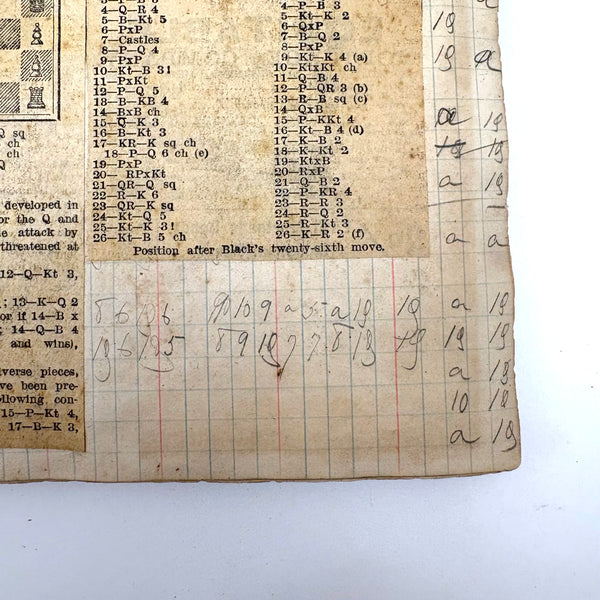 4—Q—R 4
5—B—Kt 5
6—PxP
7—Castles
8—P—Q 4
9—PxP
10—Kt—B 3!
11—PxKt
12—P—Q 5
13—B—KB 4
14—BxB ch
15—Q—K 3
16—B—Kt 3
17—KR—K sq ch
18—P—Q 6 ch (e)
19—PxP
20— RPxKt
21—QR—Q sq
22—R—K 6
23—QR—K sq
24—Kt—Q 5
25—Kt—K 3!
26—Kt—B 5 ch
4—P—B 3
5—Kt—K 2
6—QxP
7—B—Q 2
8—PxP
9—Kt—K 4 (a)
10—KtxKt ch
11—Q—B 4
12—P—QR 3 (b)
13—R—B sq (c)
14—QxB
15—P—KKt 4
16—Kt—B 4 (d)
17—K—B 2
18—K—Kt 2
19—KtxB
20—RxP
21—Q—B 2
22—P—KR 4
23—R—R 3
24—R—Q 2
25—R—Kt 3
26—K—R 2 (f)
Position after Black's twenty-sixth move.
Q sq
ch
ch
developed in
or the Q and
attack by
threatened at
12—Q—Kt 3,
; 13—K—Q 2
or if 14—B x
; 14—Q—B 4
and wins),
iverse pieces,
ve been pre-
llowing con-
15—P—Kt 4,
17—B—K 3,
19
19 a
a 19
19 19
a 19
a a
a 19
19 19
a 19
10 19
a 19